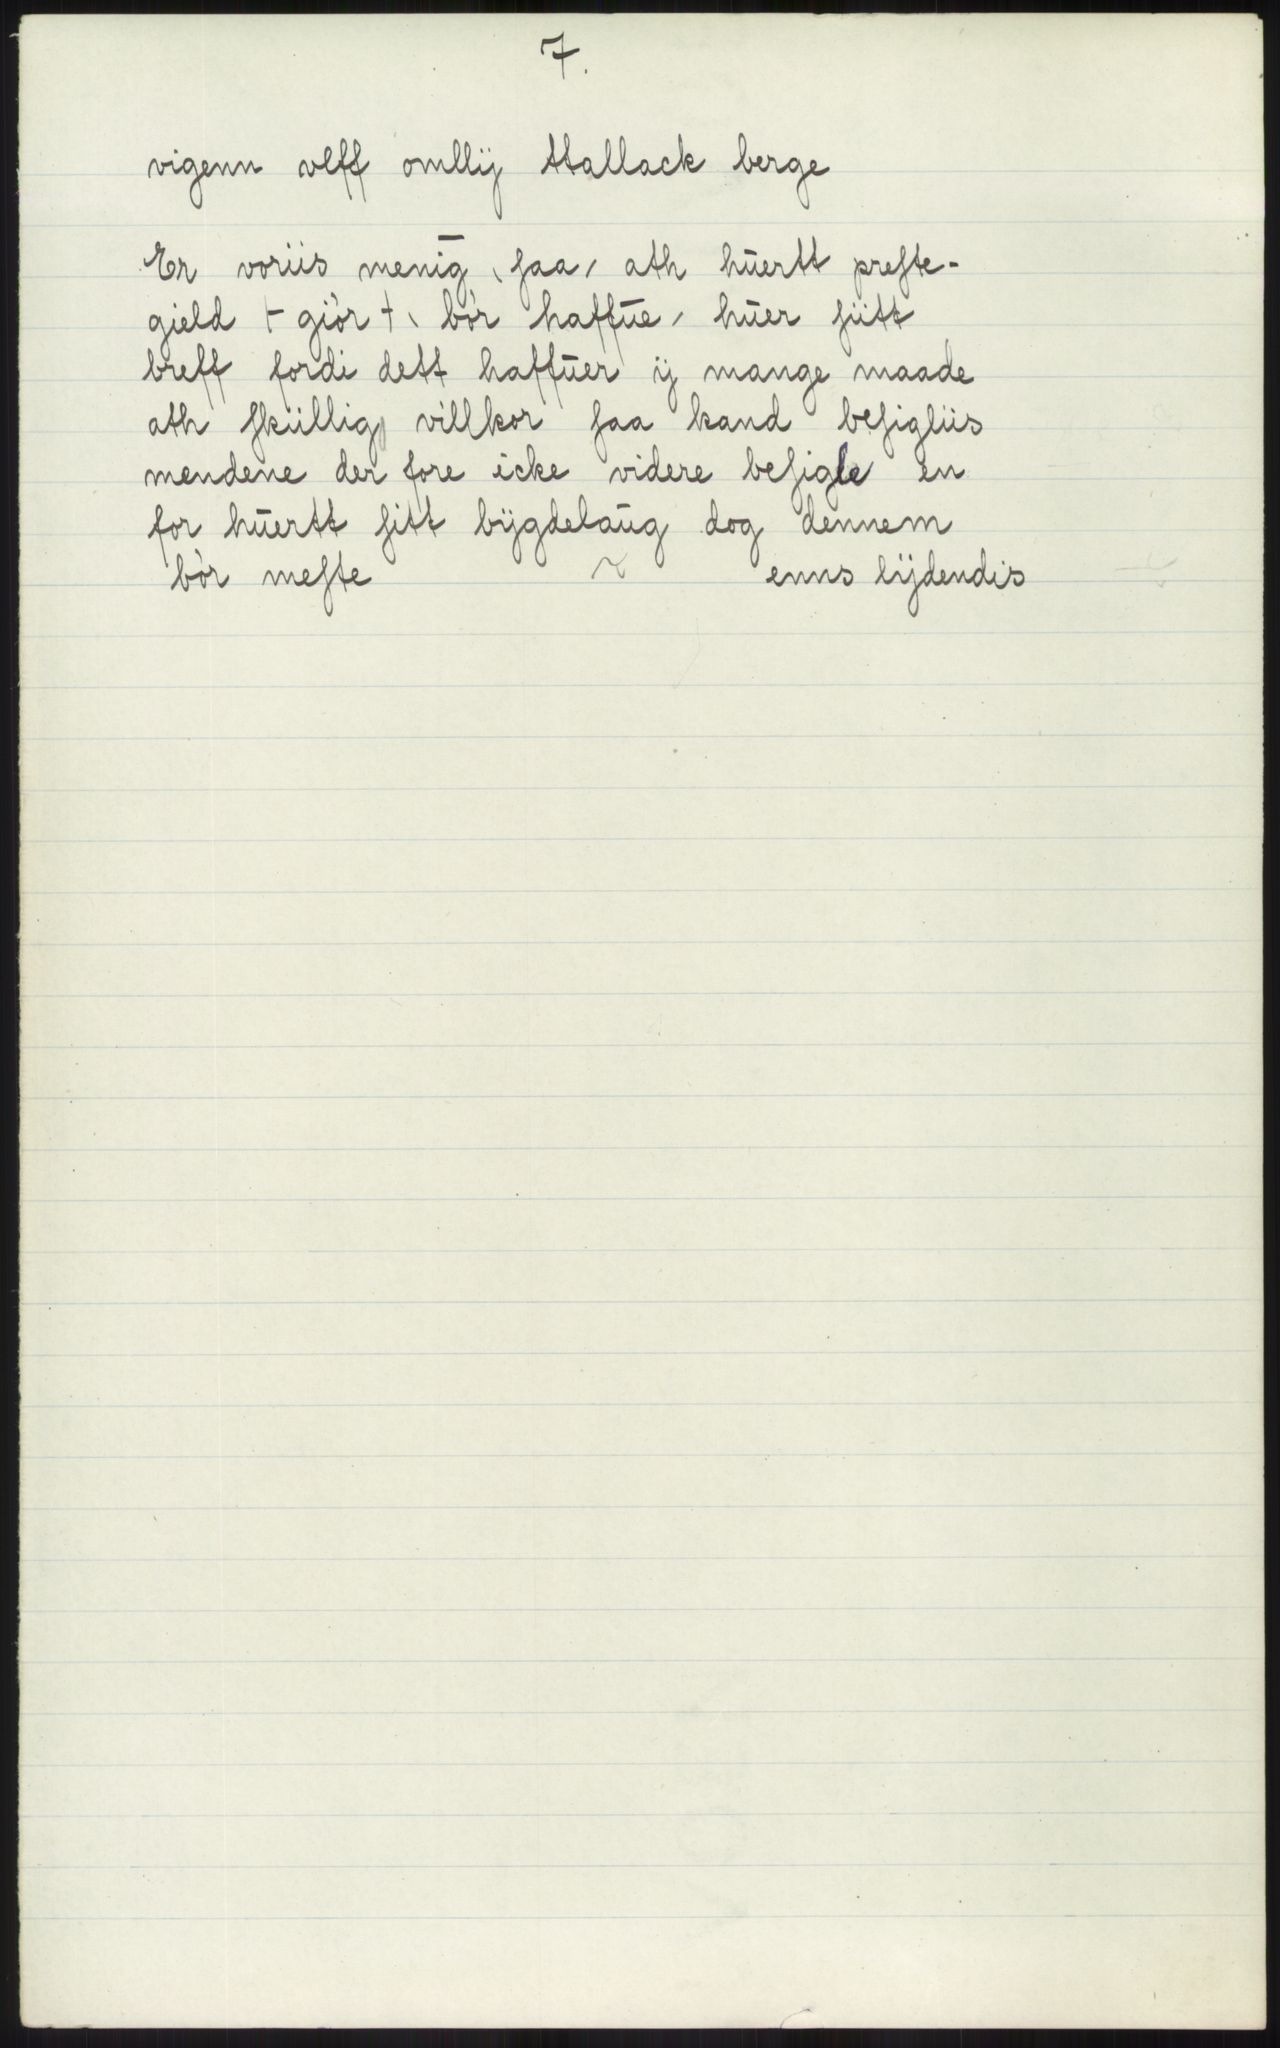 7.
vigenn vlff omllÿ ttallack berge
Er voriis menīg, ſaa, ath hūertt preſte-
gield + giör + bör haffūe, hūer ſiitt
breff fordi dett haffūer ÿ mange maade
ath ſkiillig villkor ſaa kand beſigliis
mendene der fore icke videre beſigle en
for hūertt ſitt bÿgdelaūg dog dennem
bör meſte ~ enns lÿdendis